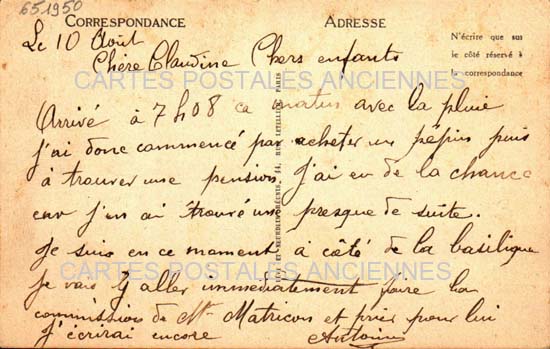 651950
CORRESPONDANCE
ADRESSE
N'écrire que sur
le côté réservé à
la correspondance
Le 10 Août
Chère Claudine Chers enfants
CARTES POSTALES ANCIENNES
Arrivé à 7h08 ce matin avec la pluie
j'ai donc commencé par acheter un pépin puis
à trouver une pension. J'ai eu de la chance
car j'en ai trouvé une presque de suite.
Je suis en ce moment à côté de la basilique
CARTES POSTALES ANCIENNES
Je vais y aller immédiatement faire la
commission de Me Matricon et prier pour lui
J'écrirai encore Antoine